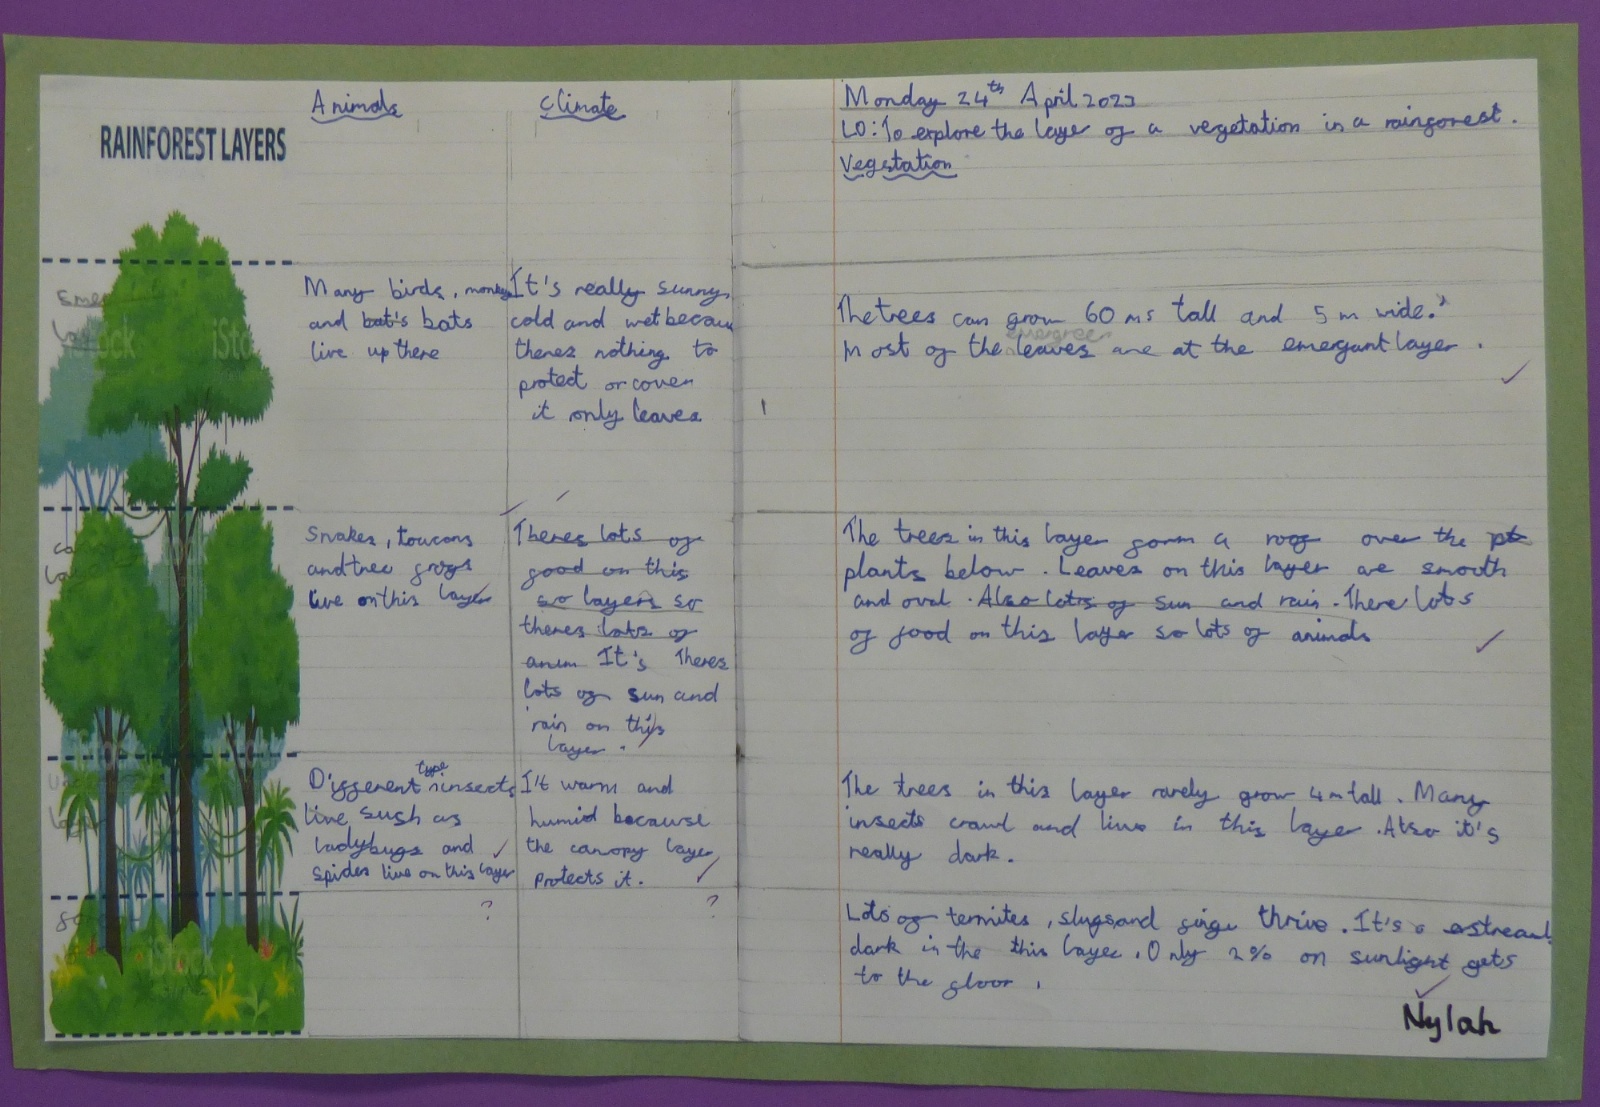 RAINFOREST LAYERS
Animals
Climate
Monday 24th April 2023
LO: To explore the layer of a vegetation in a rainforest.
Vegetation
Many birds, monkeys
and bat's bats
live up there
It's really sunny,
cold and wet becau
theres nothing to
protect or cover
it only leaves
The trees can grow 60 ms tall and 5 m wide.
Most of the leaves are at the emergant layer.
evergreen
Snakes, toucans
and tree frogs
live on this layer
Theres lots of
food on this
so layers so
theres lots of
anim It's Theres
lots of sun and
rain on this
layer.
The trees in this layer form a roof over the
plants below. Leaves on this layer are smooth
and oval. Also lots of sun and rain. There lots
of food on this layer so lots of animals
Different type insects
live sush as
ladybugs and
spides live on this layer
It warm and
humid because
the canopy layer
protects it.
The trees in this layer rarely grow 4m tall. Many
insects crawl and live in this layer. Also it's
really dark.
?
?
Lots of termites, slugs and thrive. It's
dark in the this layer. Only 2% on sunlight gets
to the floor.
Nylah
iStock